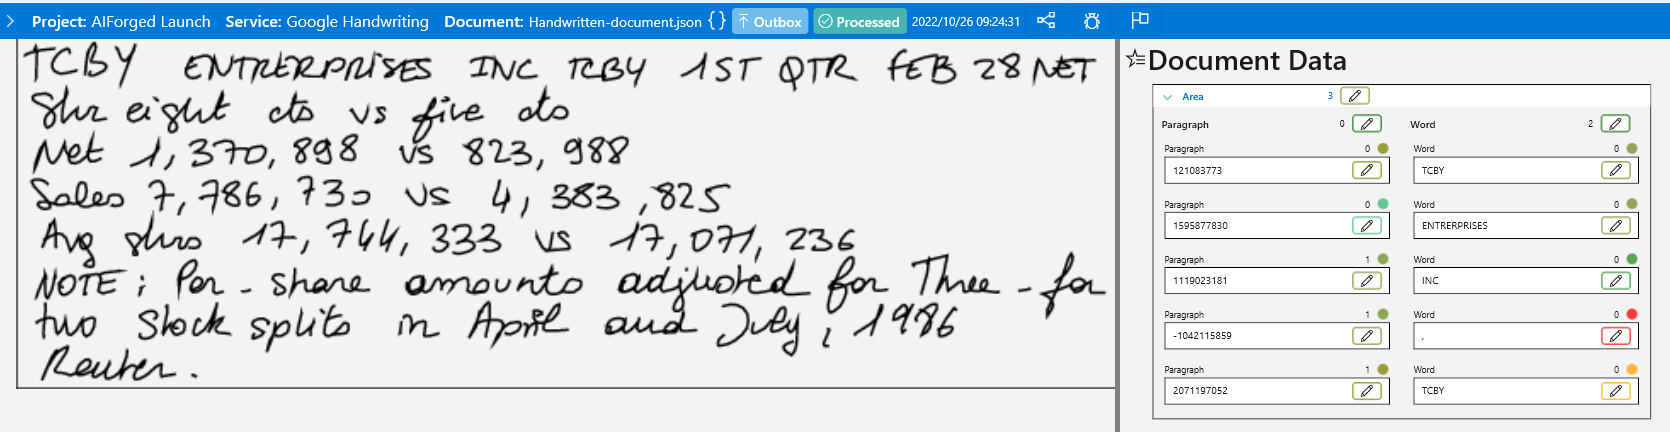 Project: AIForged Launch Service: Google Handwriting Document: Handwritten-document.json {} Outbox Processed 2022/10/26 09:24:31
TCBY ENTRERPRISES INC TCBY 1ST QTR FEB 28 NET
Shr eight cts vs five cts
Net 1,370,898 vs 823,988
Sales 7,786,730 vs 4,383,825
Avg shrs 17,744,333 vs 17,071,236
NOTE: Per-share amounts adjusted for Three-for
two stock splits in April and July, 1986
Reuter.
Document Data
Area 3
Paragraph 0 Word 2
Paragraph 0 Word 0
121083773 TCBY
Paragraph 0 Word 0
1595877830 ENTRERPRISES
Paragraph 1 Word 0
1119023181 INC
Paragraph 1 Word 0
-1042115859 ,
Paragraph 1 Word 0
2071197052 TCBY